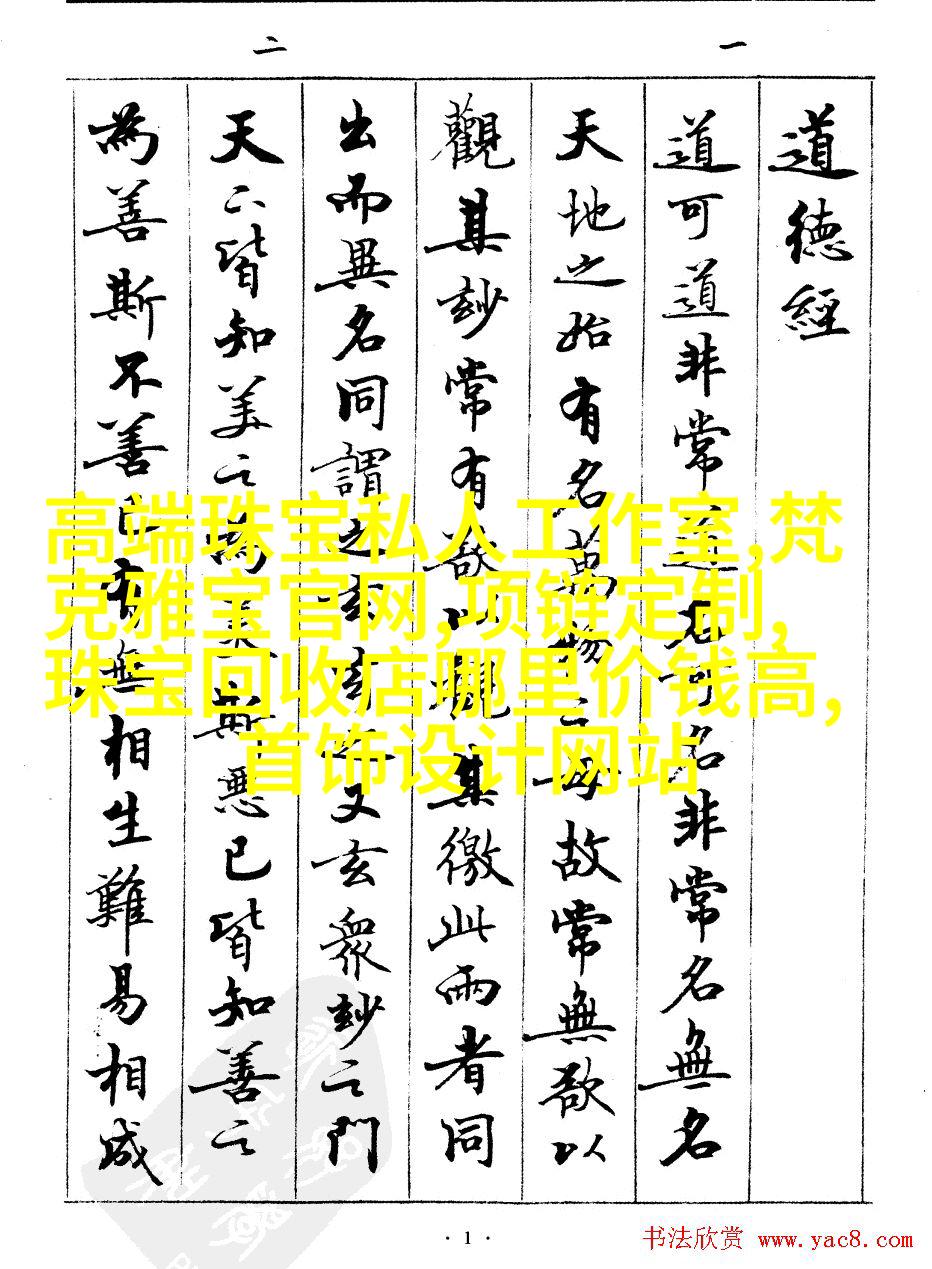 一
二
道德經
道可道非常道名可名非常名無名
天地之始有名萬物之母故常無欲以
觀其玅常有欲以觀其徼此兩者同
出而異名同謂之玄玄之又玄衆玅之門
天下皆知美之為美斯惡已皆知善之
為善斯不善已有無相生難易相成
高端珠宝私人工作室,梵
克雅宝官网,项链定制,
珠宝回收店哪里价钱高,
首饰设计网站
· 1 ·
书法欣赏 www.yac8.com